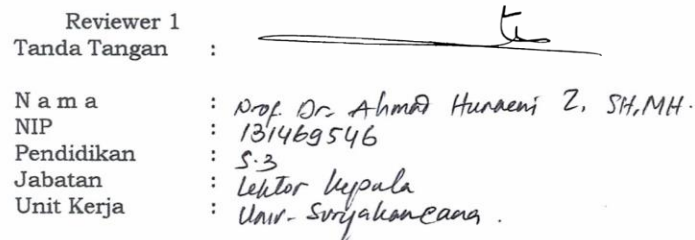 Reviewer 1
Tanda Tangan :
N a m a : Prof. Dr. Ahmad Hunaeni Z, SH, MH.
NIP : 131469546
Pendidikan : S.3
Jabatan : Lektor Kepala
Unit Kerja : Univ. Suryakancana.